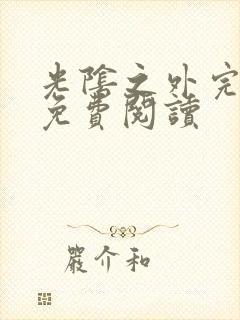 光陰之外完
免費閱讀
嚴介和